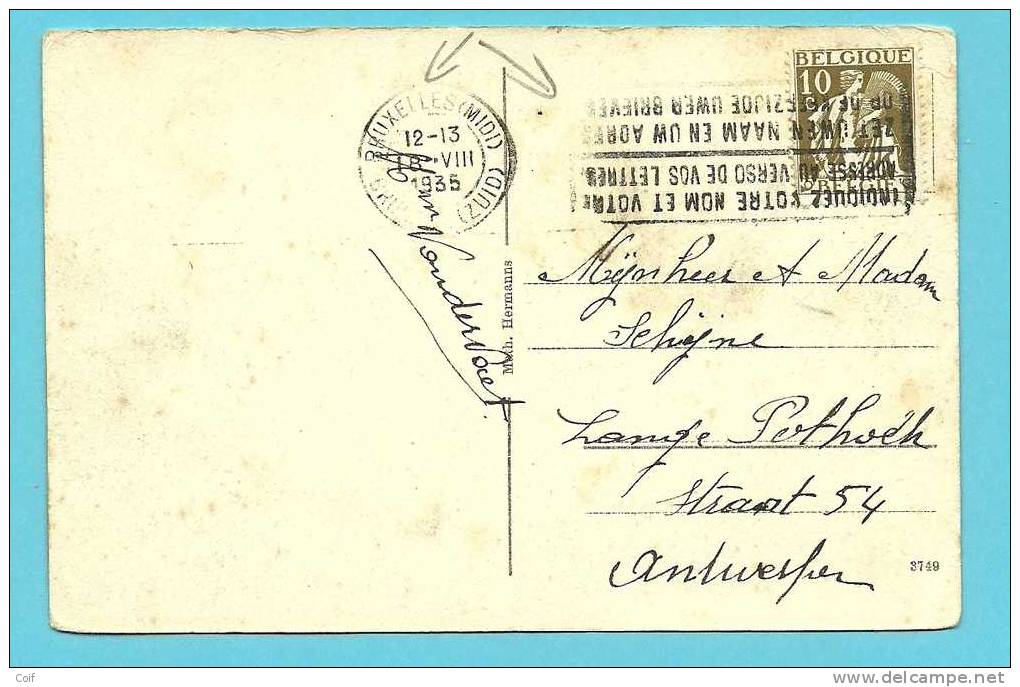 BRUXELLES (MIDI)
(ZUID)
12-13
18 VIII
1935
BELGIQUE
10
BELGIË
INDIQUEZ VOTRE NOM ET VOTRE
ADRESSE AU VERSO DE VOS LETTRES
ZET UWEN NAAM EN UW ADRES
OP DE KEERZIJDE UWER BRIEVEN
Math. Hermanns
Mÿnheer & Madam
Schÿne
Lange Pothoek
Straat 54
Antwerpen
3749
Coif
www.delcampe.net